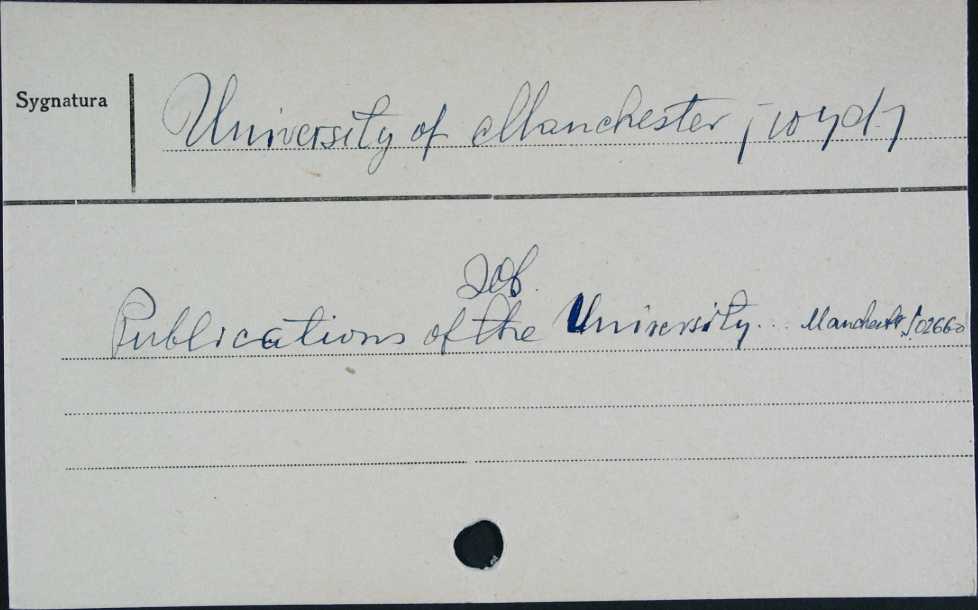 Sygnatura
University of Manchester, [wyd.]
Zob.
Publications of the University... Manchester S.02660